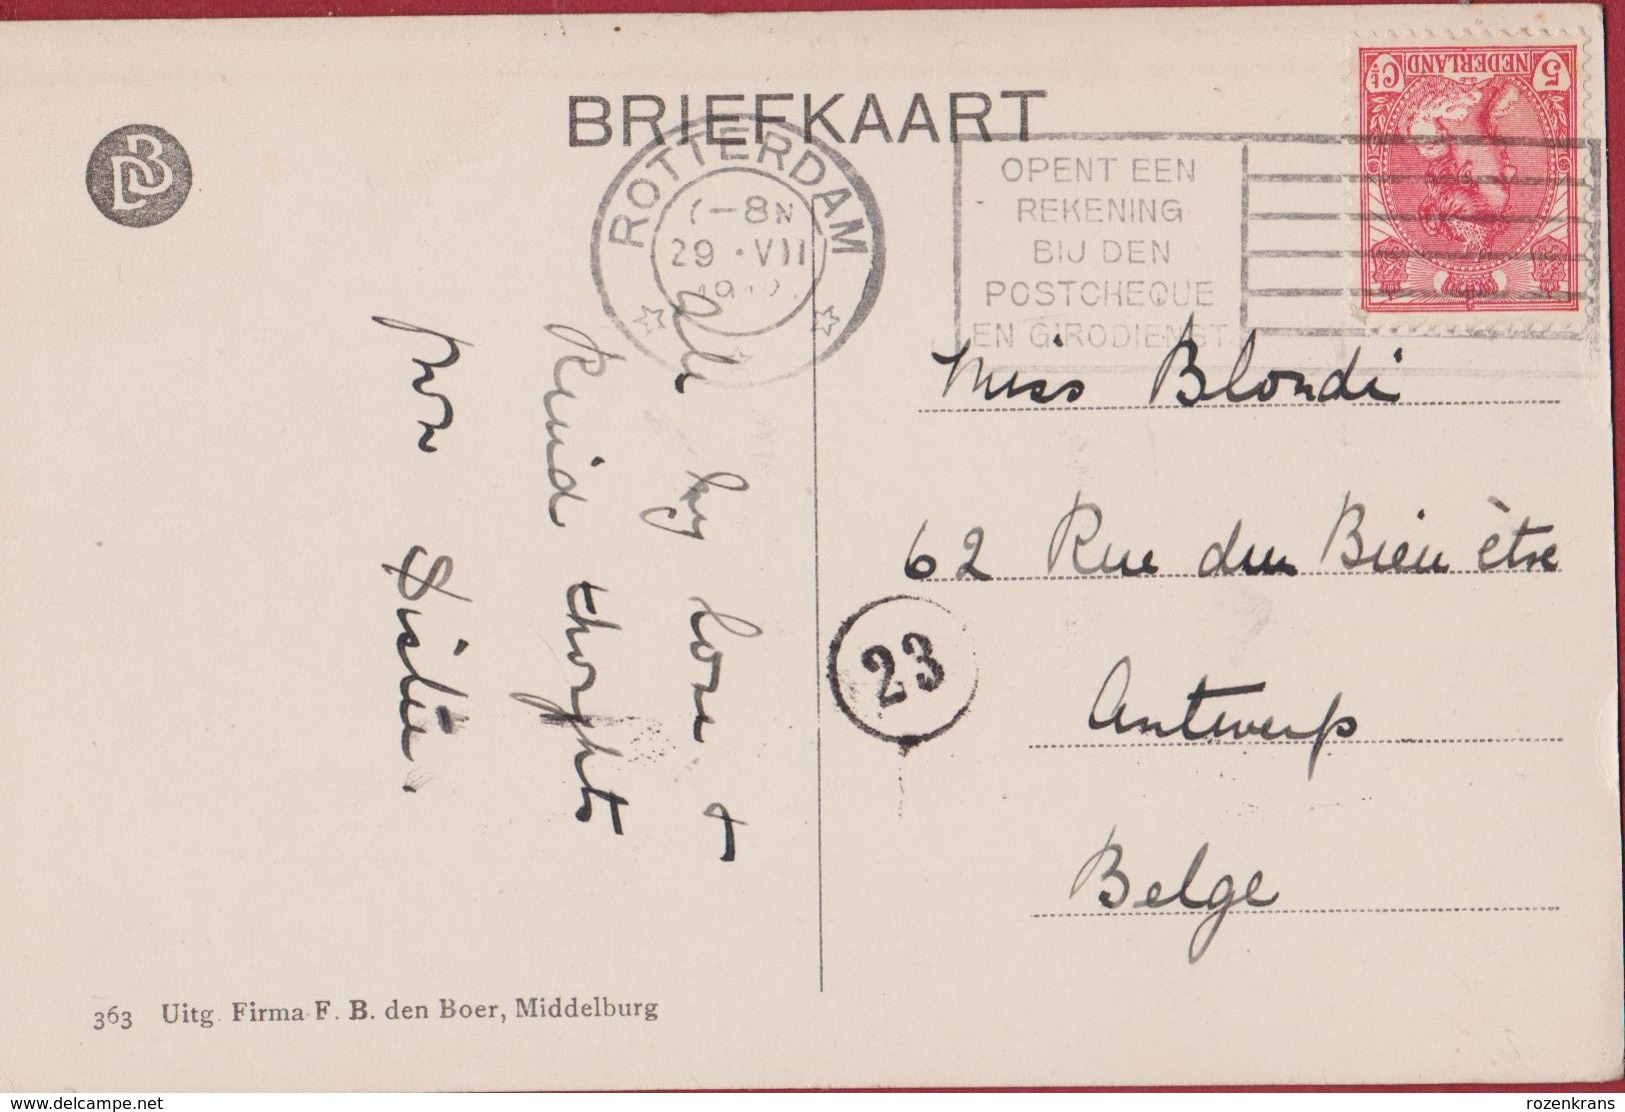 BRIEFKAART
DB
ROTTERDAM
-8N
29 · VII
OPENT EEN
REKENING
BIJ DEN
POSTCHEQUE
EN GIRODIENST
5 Ct
NEDERLAND
5
Miss Blondi
62 Rue du Bien être
Antwerp
Belge
23
All my Love +
Kind thoughts
from
363 Uitg. Firma F. B. den Boer, Middelburg
www.delcampe.net
rozenkrans